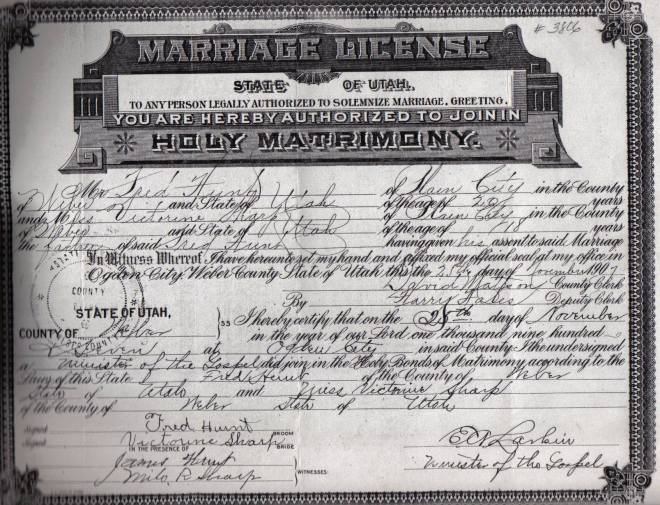 # 3806
MARRIAGE LICENSE
STATE OF UTAH.
TO ANY PERSON LEGALLY AUTHORIZED TO SOLEMNIZE MARRIAGE, GREETING.
YOU ARE HEREBY AUTHORIZED TO JOIN IN
HOLY MATRIMONY.
Mr Fred Hunt of Plain City in the County
of Weber and State of Utah of the age of years
and Miss Victorine Sharp of Plain City in the County
of Weber and State of Utah of the age of 18 years
the of said Fred Hunt having given his assent to said Marriage
In Witness Whereof I have hereunto set my hand and affixed my official seal at my office in
Ogden City, Weber County State of Utah this day of November 1907
David Mattson County Clerk
By Harry Hales Deputy Clerk
COUNTY
STATE OF UTAH,
COUNTY OF Weber SS I hereby certify that on the 28th day of November
in the year of our Lord one thousand nine hundred
Seven at City in said County I the undersigned
a Minister of the Gospel did join in the Holy Bonds of Matrimony according to the
Laws of this State Fred Hunt of the County of Weber
State of Utah and Miss Victorine Sharp
of the County of Weber State of Utah
Signed Fred Hunt GROOM
Signed Victorine Sharp BRIDE
IN THE PRESENCE OF
James Hunt
Milo R Sharp WITNESSES:
Larkin
Minister of the Gospel